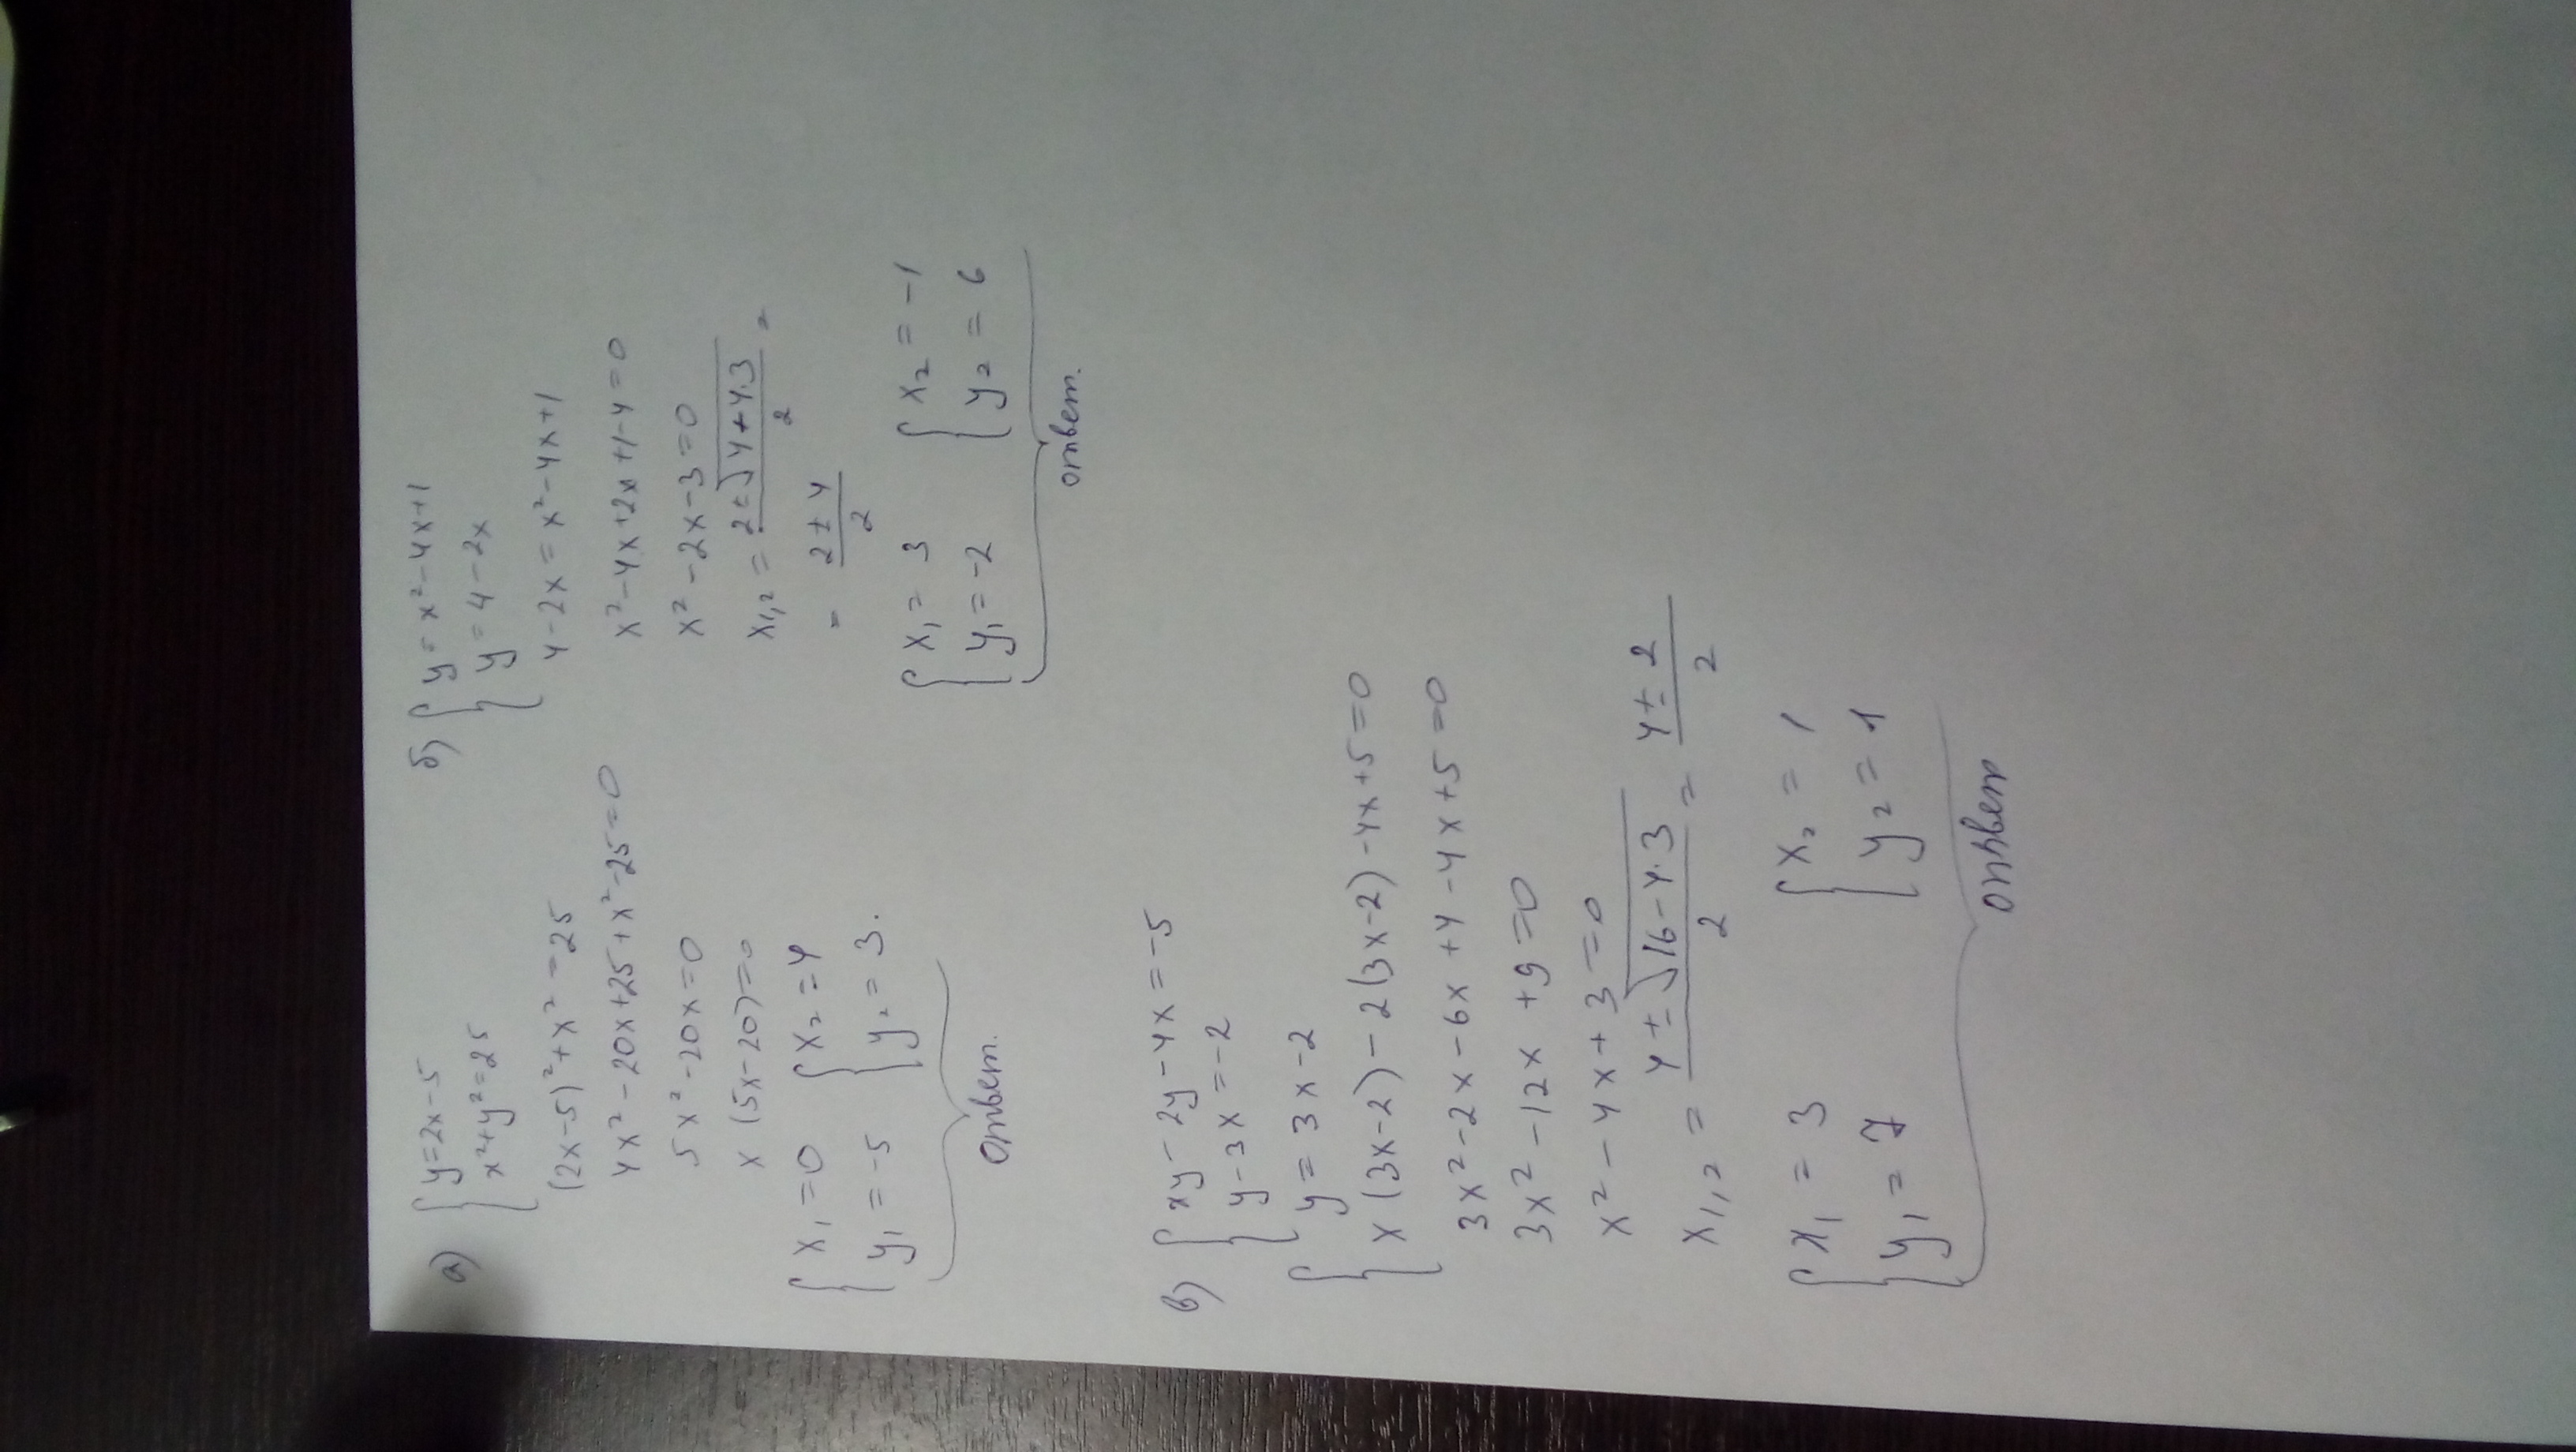 а) { y=2x-5
x²+y²=25
(2x-5)²+x²=25
4x²-20x+25+x²-25=0
5x²-20x=0
x(5x-20)=0
{ x₁=0 { x₂=4
y₁=-5 y₂=3.
ответ.
б) { y=x²-4x+1
y=4-2x
4-2x=x²-4x+1
x²-4x+2x+1-4=0
x²-2x-3=0
x₁,₂ = (2±√(4+4·3))/2 =
= (2±4)/2
{ x₁=3 { x₂=-1
y₁=-2 y₂=6
ответ.
в) { xy-2y-4x=-5
y-3x=-2
{ y=3x-2
x(3x-2)-2(3x-2)-4x+5=0
3x²-2x-6x+4-4x+5=0
3x²-12x+9=0
x²-4x+3=0
x₁,₂ = (4±√(16-4·3))/2 = (4±2)/2
{ x₁=3 { x₂=1
y₁=7 y₂=1
ответ